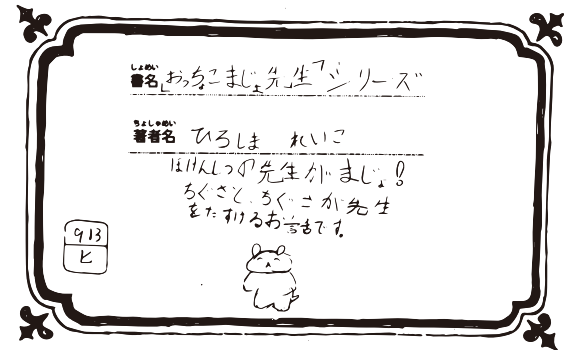 しょめい
書名「おっちょこまじょ先生」シリーズ
ちょしゃめい
著者名 ひろしま れいこ
ほけんしつの先生がまじょ!
ちぐさと、ちぐさが先生
をたすけるお話です。
913
ヒ